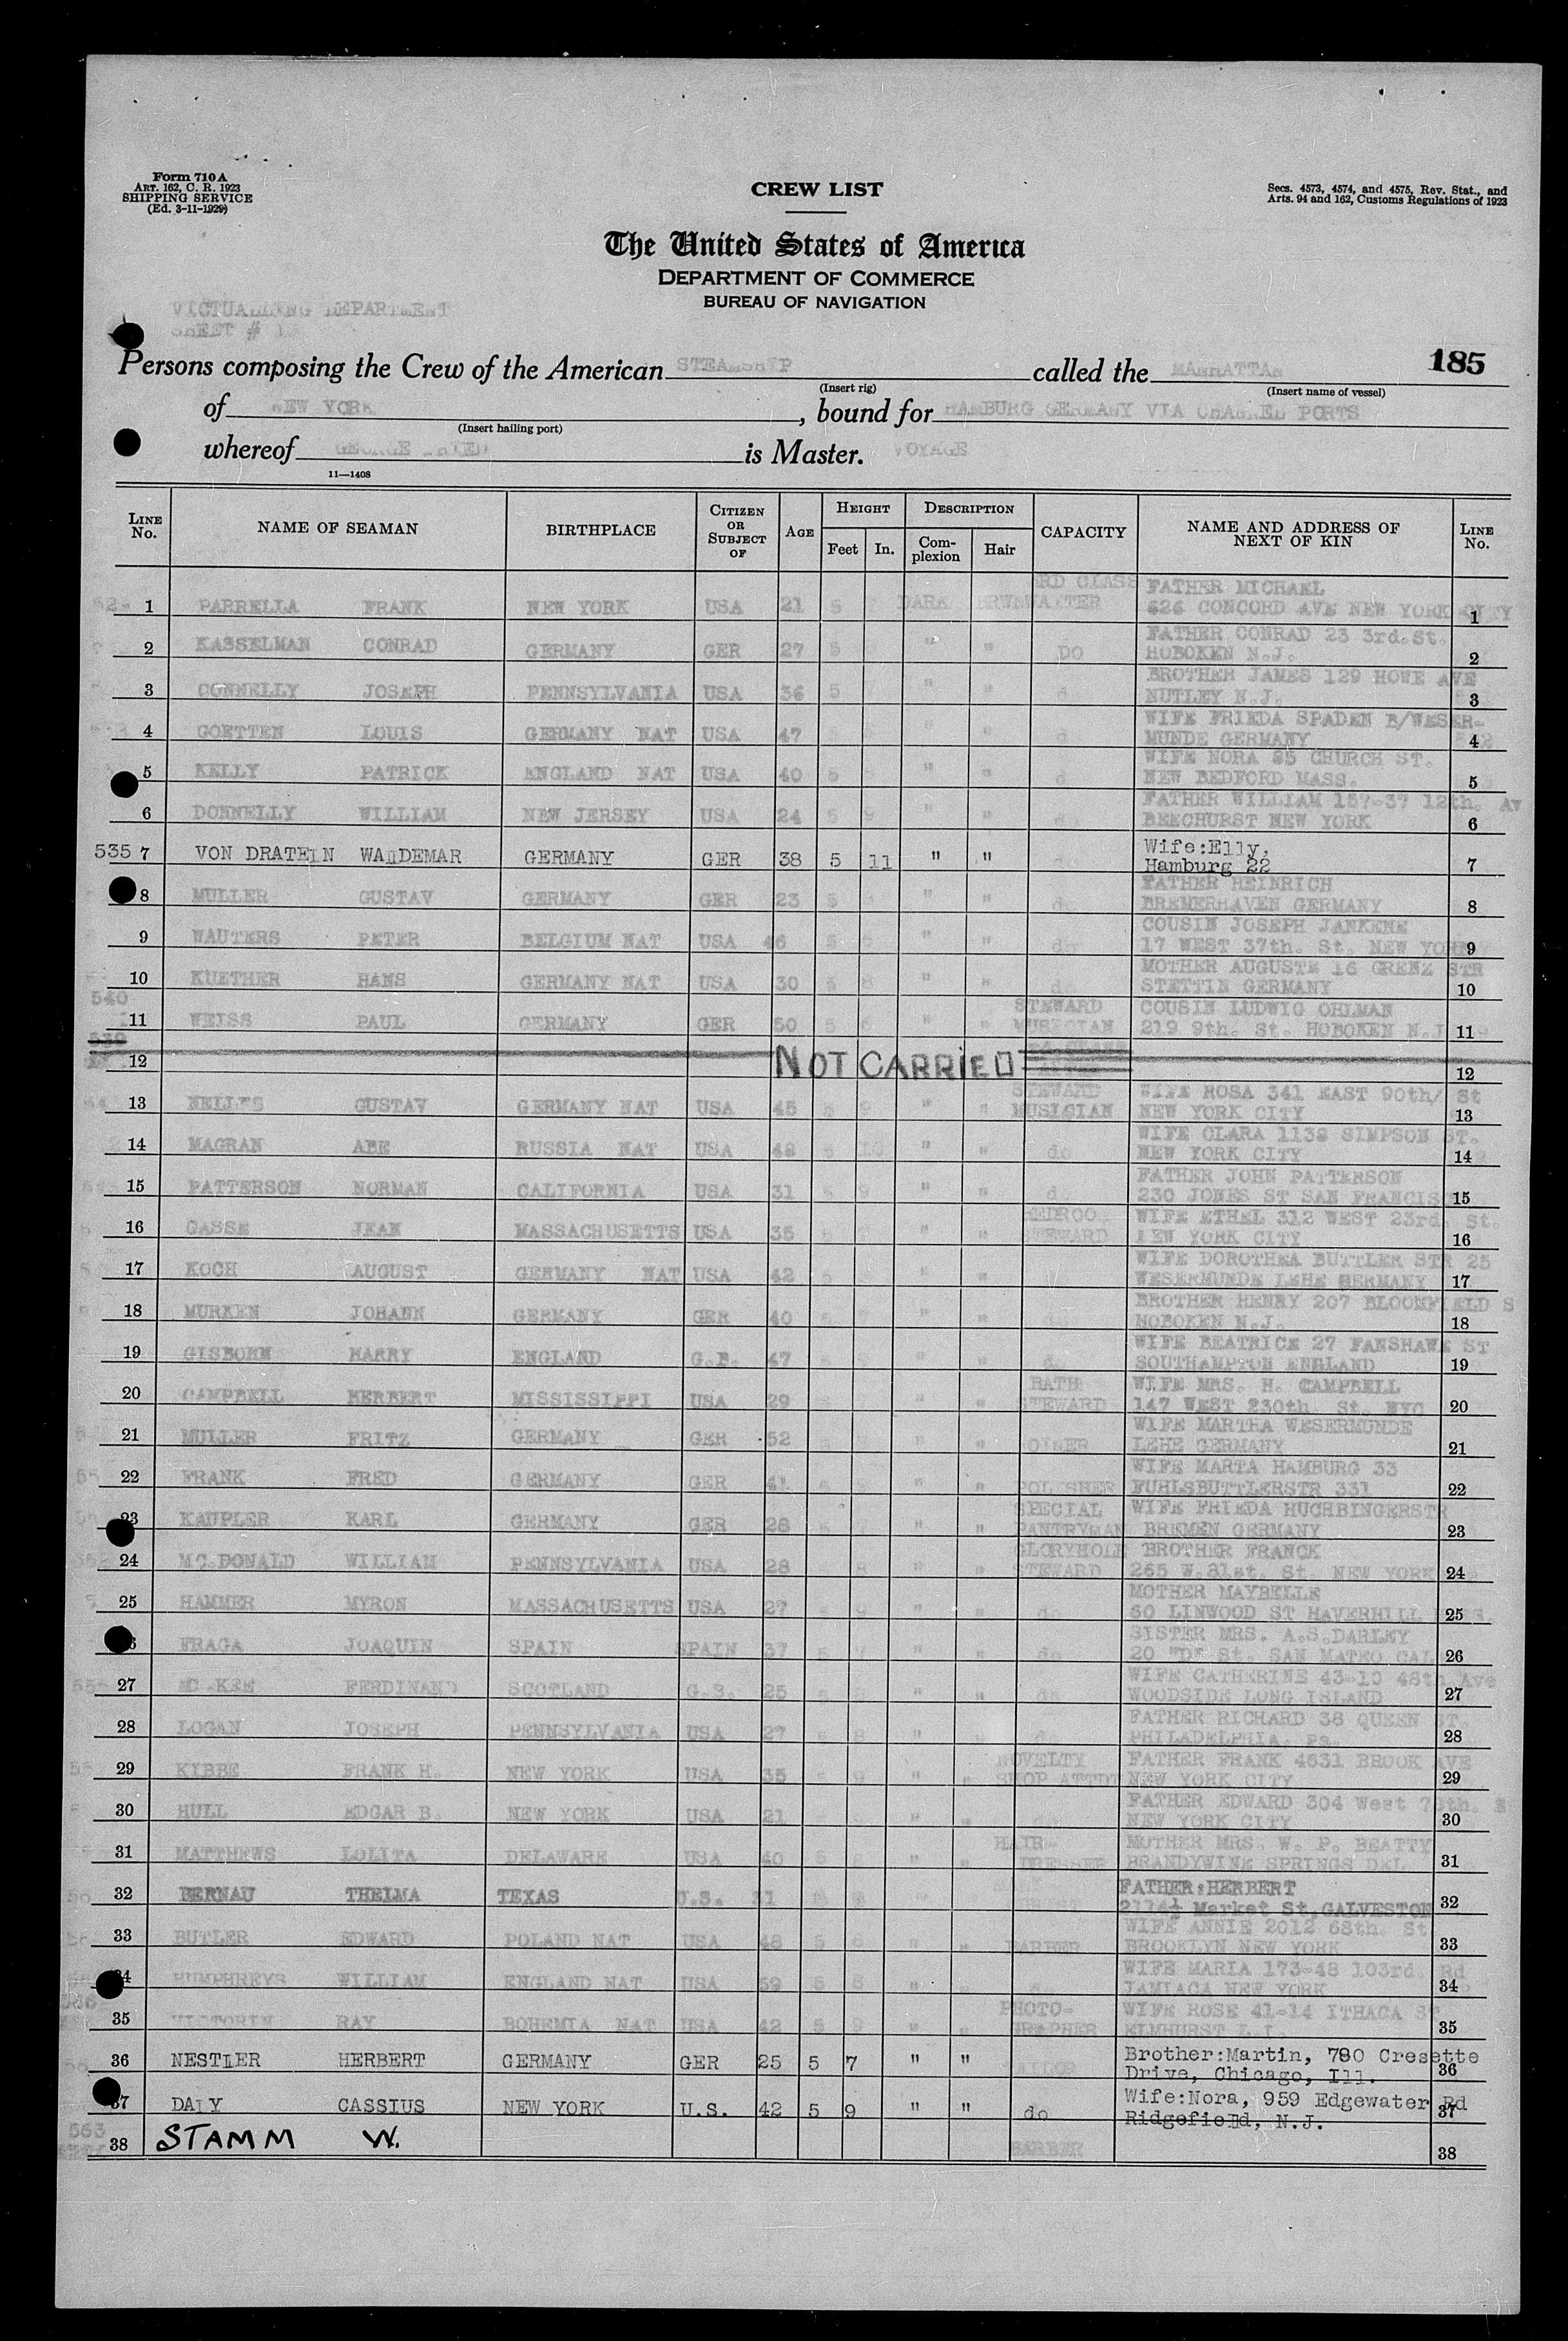 Form 710 A
ART. 162, C. R. 1923
SHIPPING SERVICE
(Ed. 3-11-1929)
CREW LIST
Secs. 4573, 4574, and 4575, Rev. Stat., and
Arts. 94 and 162, Customs Regulations of 1923
The United States of America
DEPARTMENT OF COMMERCE
BUREAU OF NAVIGATION
VICTUALLING DEPARTMENT
SHEET #
185
Persons composing the Crew of the American STEAMSHIP called the MANHATTAN
(Insert rig) (Insert name of vessel)
of NEW YORK, bound for HAMBURG GERMANY VIA CHANNEL PORTS
(Insert hailing port)
whereof GEORGE is Master. VOYAGE
11—1408
LINE No. NAME OF SEAMAN BIRTHPLACE CITIZEN OR SUBJECT OF AGE HEIGHT Feet In. DESCRIPTION Complexion Hair CAPACITY NAME AND ADDRESS OF NEXT OF KIN LINE No.
1 PARRELLA FRANK NEW YORK USA 21 5 7 DARK BRWN RD CLASS WAITER FATHER MICHAEL 626 CONCORD AVE NEW YORK CITY 1
2 KASSELMAN CONRAD GERMANY GER 27 5 " " DO FATHER CONRAD 23 3rd. St. HOBOKEN N.J. 2
3 CONNELLY JOSEPH PENNSYLVANIA USA 36 5 7 " " BROTHER JAMES 129 HOWE AVE NUTLEY N.J. 3
4 GOETTEN LOUIS GERMANY NAT USA 47 " " WIFE FRIEDA SPADEN B/WESER- MUNDE GERMANY 4
5 KELLY PATRICK ENGLAND NAT USA 40 5 " " WIFE NORA 25 CHURCH ST. NEW BEDFORD MASS. 5
6 DONNELLY WILLIAM NEW JERSEY USA 24 5 9 " do FATHER WILLIAM 157-37 12th. AV BEECHURST NEW YORK 6
535 7 VON DRATELN WALDEMAR GERMANY GER 38 5 11 " " Wife:Elly, Hamburg 22 7
8 MULLER GUSTAV GERMANY GER 23 5 " " do FATHER HEINRICH BREMERHAVEN GERMANY 8
9 WAUTERS PETER BELGIUM NAT USA 46 5 " " do COUSIN JOSEPH JANKENE 17 WEST 37th. St. NEW YORK 9
10 KUETHER HANS GERMANY NAT USA 30 5 8 " " do MOTHER AUGUSTE 16 GRENZ STR STETTIN GERMANY 10
540
11 WEISS PAUL GERMANY GER 50 5 " " STEWARD MUSICIAN COUSIN LUDWIG OHLMAN 219 9th. St. HOBOKEN N.J 11
12 NOT CARRIED 12
13 NELLES GUSTAV GERMANY NAT USA 45 9 " " STEWARD MUSICIAN WIFE ROSA 341 EAST 90th/ St NEW YORK CITY 13
14 MAGRAN ABE RUSSIA NAT USA 48 5 10 " " do WIFE CLARA 1138 SIMPSON ST. NEW YORK CITY 14
15 PATTERSON NORMAN CALIFORNIA USA 31 5 9 " " do FATHER JOHN PATTERSON 230 JONES ST SAN FRANCIS 15
16 GASSE JEAN MASSACHUSETTS USA 35 " " BEDROO STEWARD WIFE ETHEL 312 WEST 23rd. St. NEW YORK CITY 16
17 KOCH AUGUST GERMANY NAT USA 42 " " WIFE DOROTHEA BUTTLER STR 25 WESERMUNDE LEHE GERMANY 17
18 MURKEN JOHANN GERMANY GER 40 " " BROTHER HENRY 207 BLOOMFIELD S HOBOKEN N.J. 18
19 GISBORN HARRY ENGLAND G.B. 47 " " do WIFE BEATRICE 27 FANSHAWE ST SOUTHAMPTON ENGLAND 19
20 CAMPBELL HERBERT MISSISSIPPI USA 29 " BATH STEWARD WIFE MRS. H. CAMPBELL 147 WEST 230th. St. NYC 20
21 MULLER FRITZ GERMANY GER 52 " " WIFE MARTHA WESERMUNDE LEHE GERMANY 21
22 FRANK FRED GERMANY GER 41 " " POLISHER WIFE MARTA HAMBURG 33 FUHLSBUTTLERSTR 331 22
23 KAUPLER KARL GERMANY GER 28 7 " " SPECIAL PANTRYMAN WIFE FRIEDA HUCHBINGERSTR BREMEN GERMANY 23
24 MC.DONALD WILLIAM PENNSYLVANIA USA 28 8 " " GLORYHOLE STEWARD BROTHER FRANCK 265 W.21st. St. NEW YORK 24
25 HAMMER MYRON MASSACHUSETTS USA 27 9 " " do MOTHER MAYBELLE 50 LINWOOD ST HAVERHILL 25
FRAGA JOAQUIN SPAIN SPAIN 37 5 7 " " do SISTER MRS. A.S.DARLEY 20 "D" St. SAN MATEO CAL 26
27 MC.KEE FERDINAND SCOTLAND 25 " " do WIFE CATHERINE 43-10 48th Ave WOODSIDE LONG ISLAND 27
28 LOGAN JOSEPH PENNSYLVANIA USA 27 5 8 " FATHER RICHARD 36 QUEEN ST. PHILADELPHIA. Pa. 28
29 KIBBE FRANK H. NEW YORK USA 35 9 " " NOVELTY SHOP ATTDT FATHER FRANK 4631 BROOK AVE NEW YORK CITY 29
30 HULL EDGAR B. NEW YORK USA 21 " " FATHER EDWARD 304 West 78th. NEW YORK CITY 30
31 MATTHEWS LOLITA DELAWARE USA 40 5 " " HAIR- DRESSER MOTHER MRS. W. P. BEATTY BRANDYWINE SPRINGS DEL 31
32 BERNAU THELMA TEXAS U.S. 31 FATHER:HERBERT 2114½ Market St,GALVESTON 32
33 BUTLER EDWARD POLAND NAT USA 48 5 6 " " BARBER WIFE ANNIE 2012 68th. St BROOKLYN NEW YORK 33
34 HUMPHREYS WILLIAM ENGLAND NAT USA 59 5 8 " " WIFE MARIA 173-48 103rd. Rd JAMIACA NEW YORK 34
35 VICTORIN RAY BOHEMIA NAT USA 42 5 9 " " PHOTO- GRAPHER WIFE ROSE 41-14 ITHACA ST ELMHURST L.I. 35
36 NESTLER HERBERT GERMANY GER 25 5 7 " " TAILOR Brother:Martin, 780 Cresette Drive, Chicago, Ill. 36
37 DALY CASSIUS NEW YORK U.S. 42 5 9 " " do Wife:Nora, 959 Edgewater Rd Ridgefield, N.J. 37
563
38 STAMM W. BARBER 38